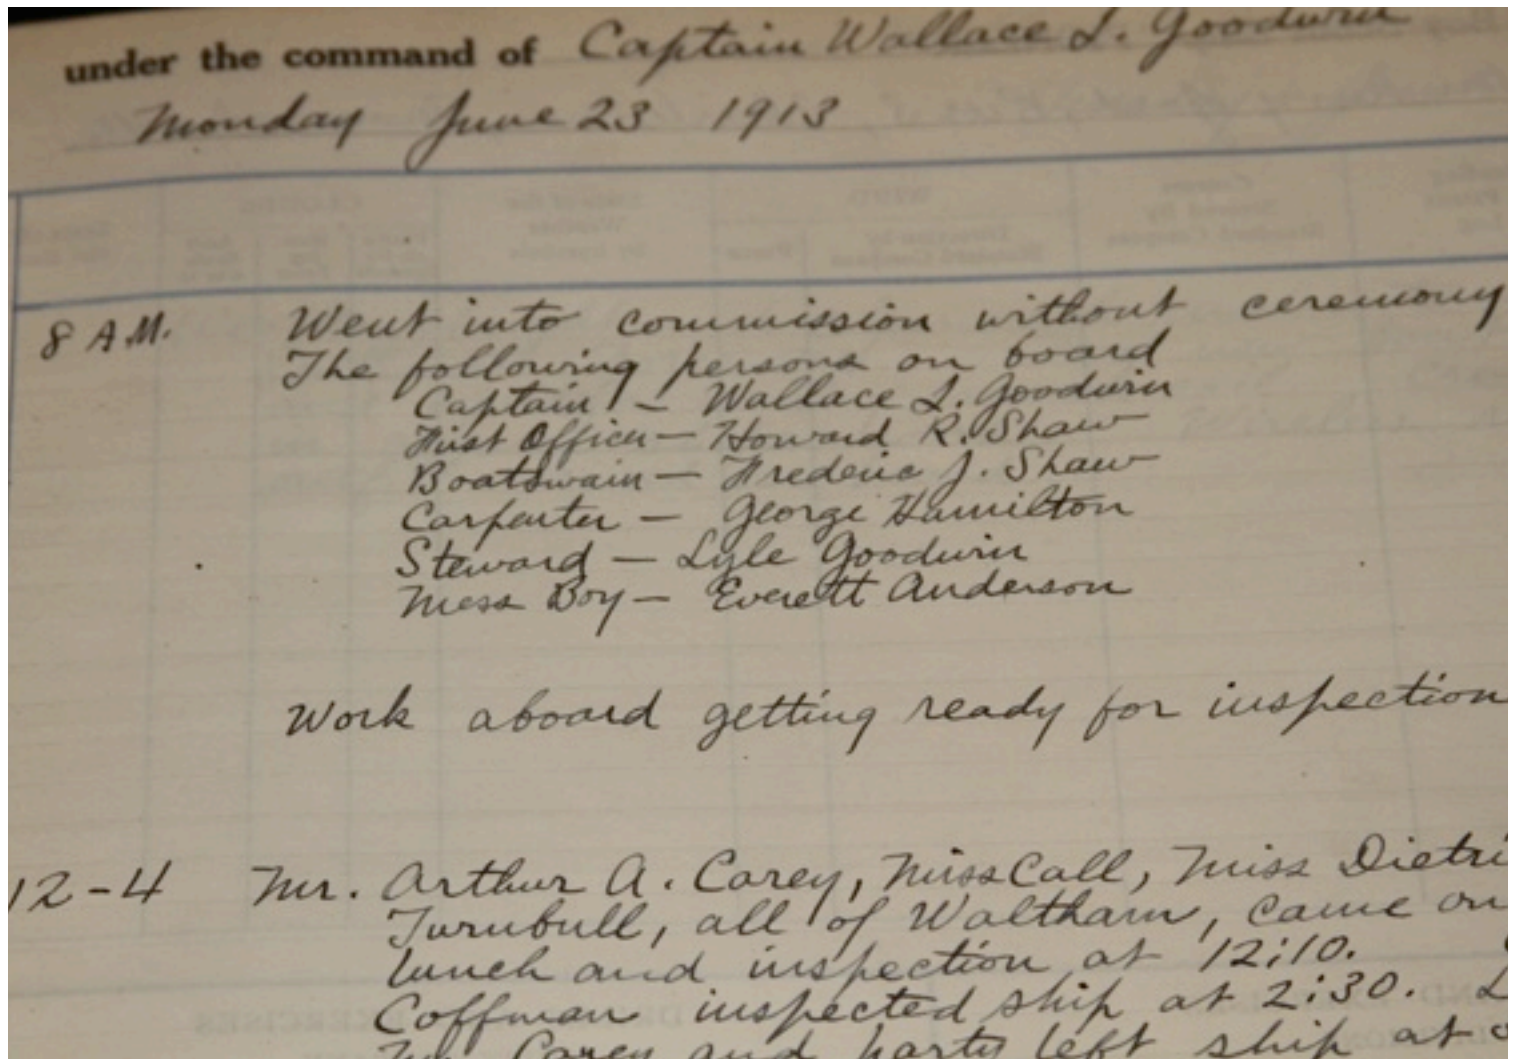 under the command of Captain Wallace L. Goodwin
Monday June 23 1913
8 A.M. Went into commission without ceremony
The following persons on board
Captain - Wallace L. Goodwin
First Officer - Howard R. Shaw
Boatswain - Frederic J. Shaw
Carpenter - George Hamilton
Steward - Lyle Goodwin
Mess Boy - Everett Anderson
Work aboard getting ready for inspection
12-4 Mr. Arthur A. Carey, Miss Call, Miss Dietri
Turnbull, all of Waltham, came on
lunch and inspection at 12:10.
Coffman inspected ship at 2:30.
Mr. Carey and party left ship at